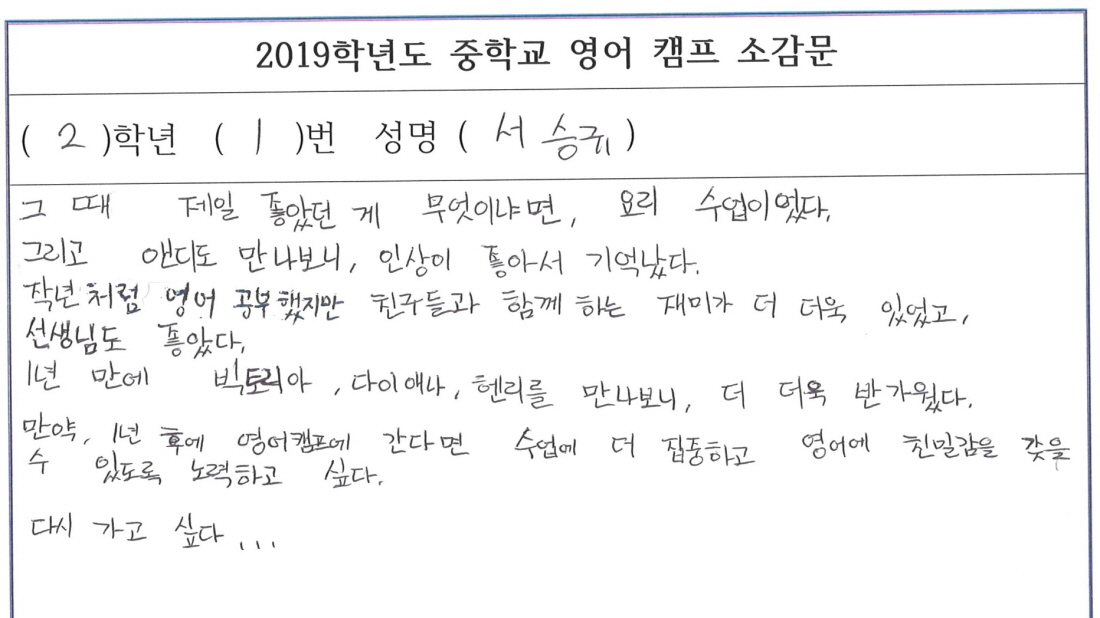 2019학년도 중학교 영어 캠프 소감문
( 2 )학년 ( 1 )번 성명 ( 서승귀 )
그 때 제일 좋았던 게 무엇이냐면, 요리 수업이었다.
그리고 앤디도 만나보니, 인상이 좋아서 기억났다.
작년처럼 영어 공부했지만 친구들과 함께 하는 재미가 더 더욱 있었고,
선생님도 좋았다.
1년 만에 빅토리아, 다이애나, 헨리를 만나보니, 더 더욱 반가웠다.
만약, 1년 후에 영어캠프에 간다면 수업에 더 집중하고 영어에 친밀감을 갖을
수 있도록 노력하고 싶다.
다시 가고 싶다...